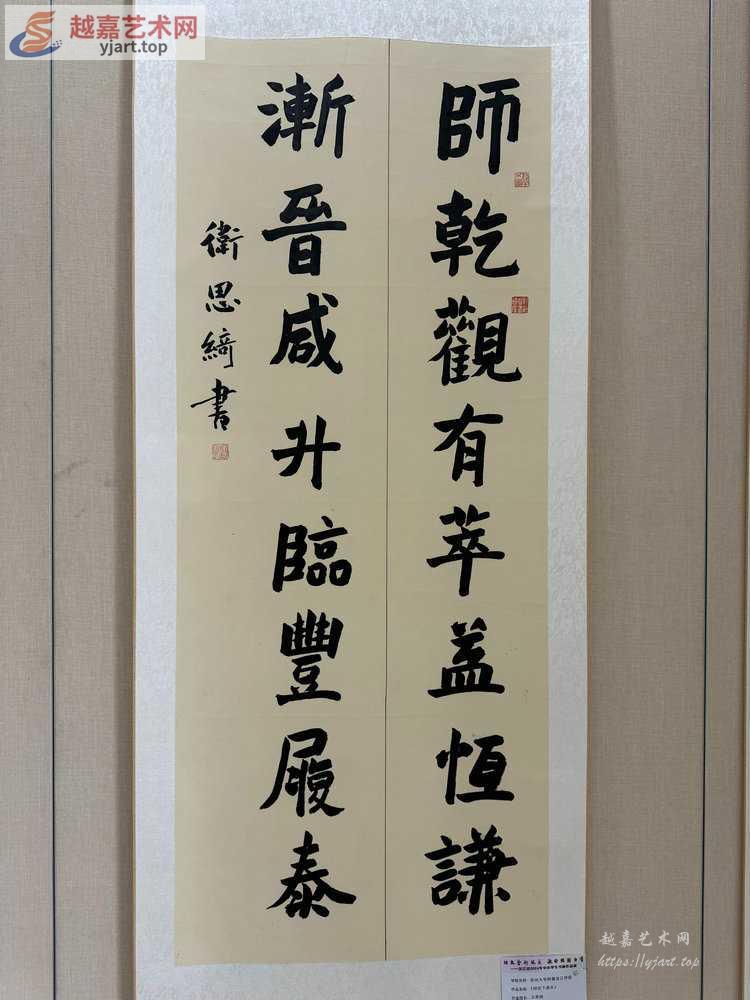 越嘉艺术网
yjart.top
師乾觀有萃益恆謙
漸晉咸升臨豐履泰
衛思綺書
越嘉艺术网
https://yjart.top